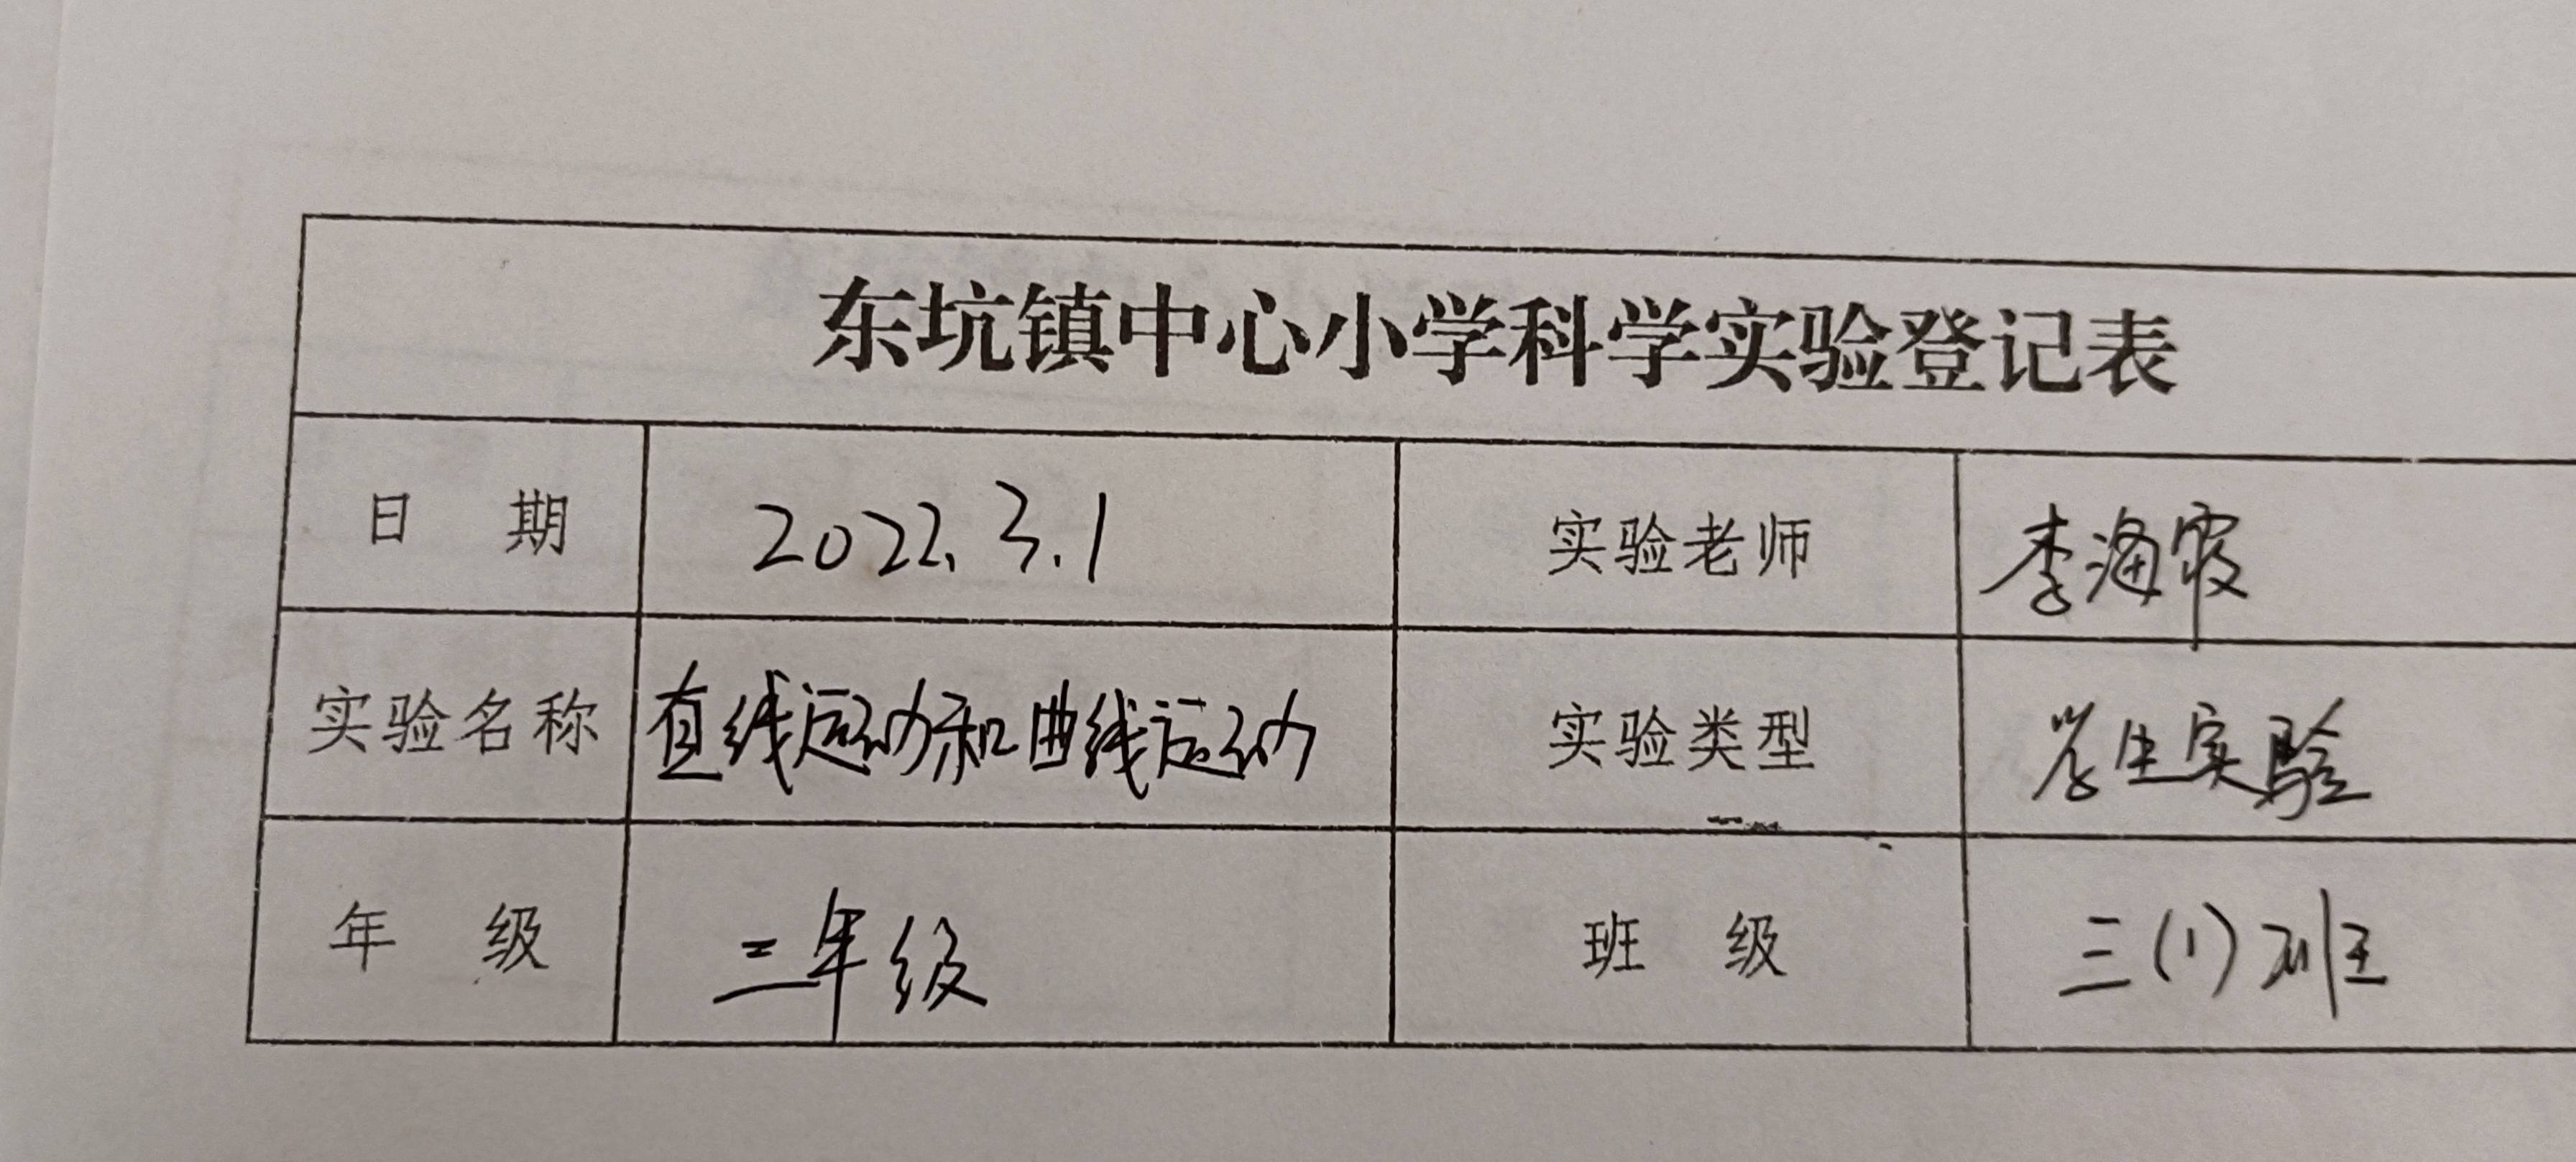 东坑镇中心小学科学实验登记表
日 期 2022.3.1 实验老师 李海霞
实验名称 直线运动和曲线运动 实验类型 学生实验
年 级 三年级 班 级 三(1)班